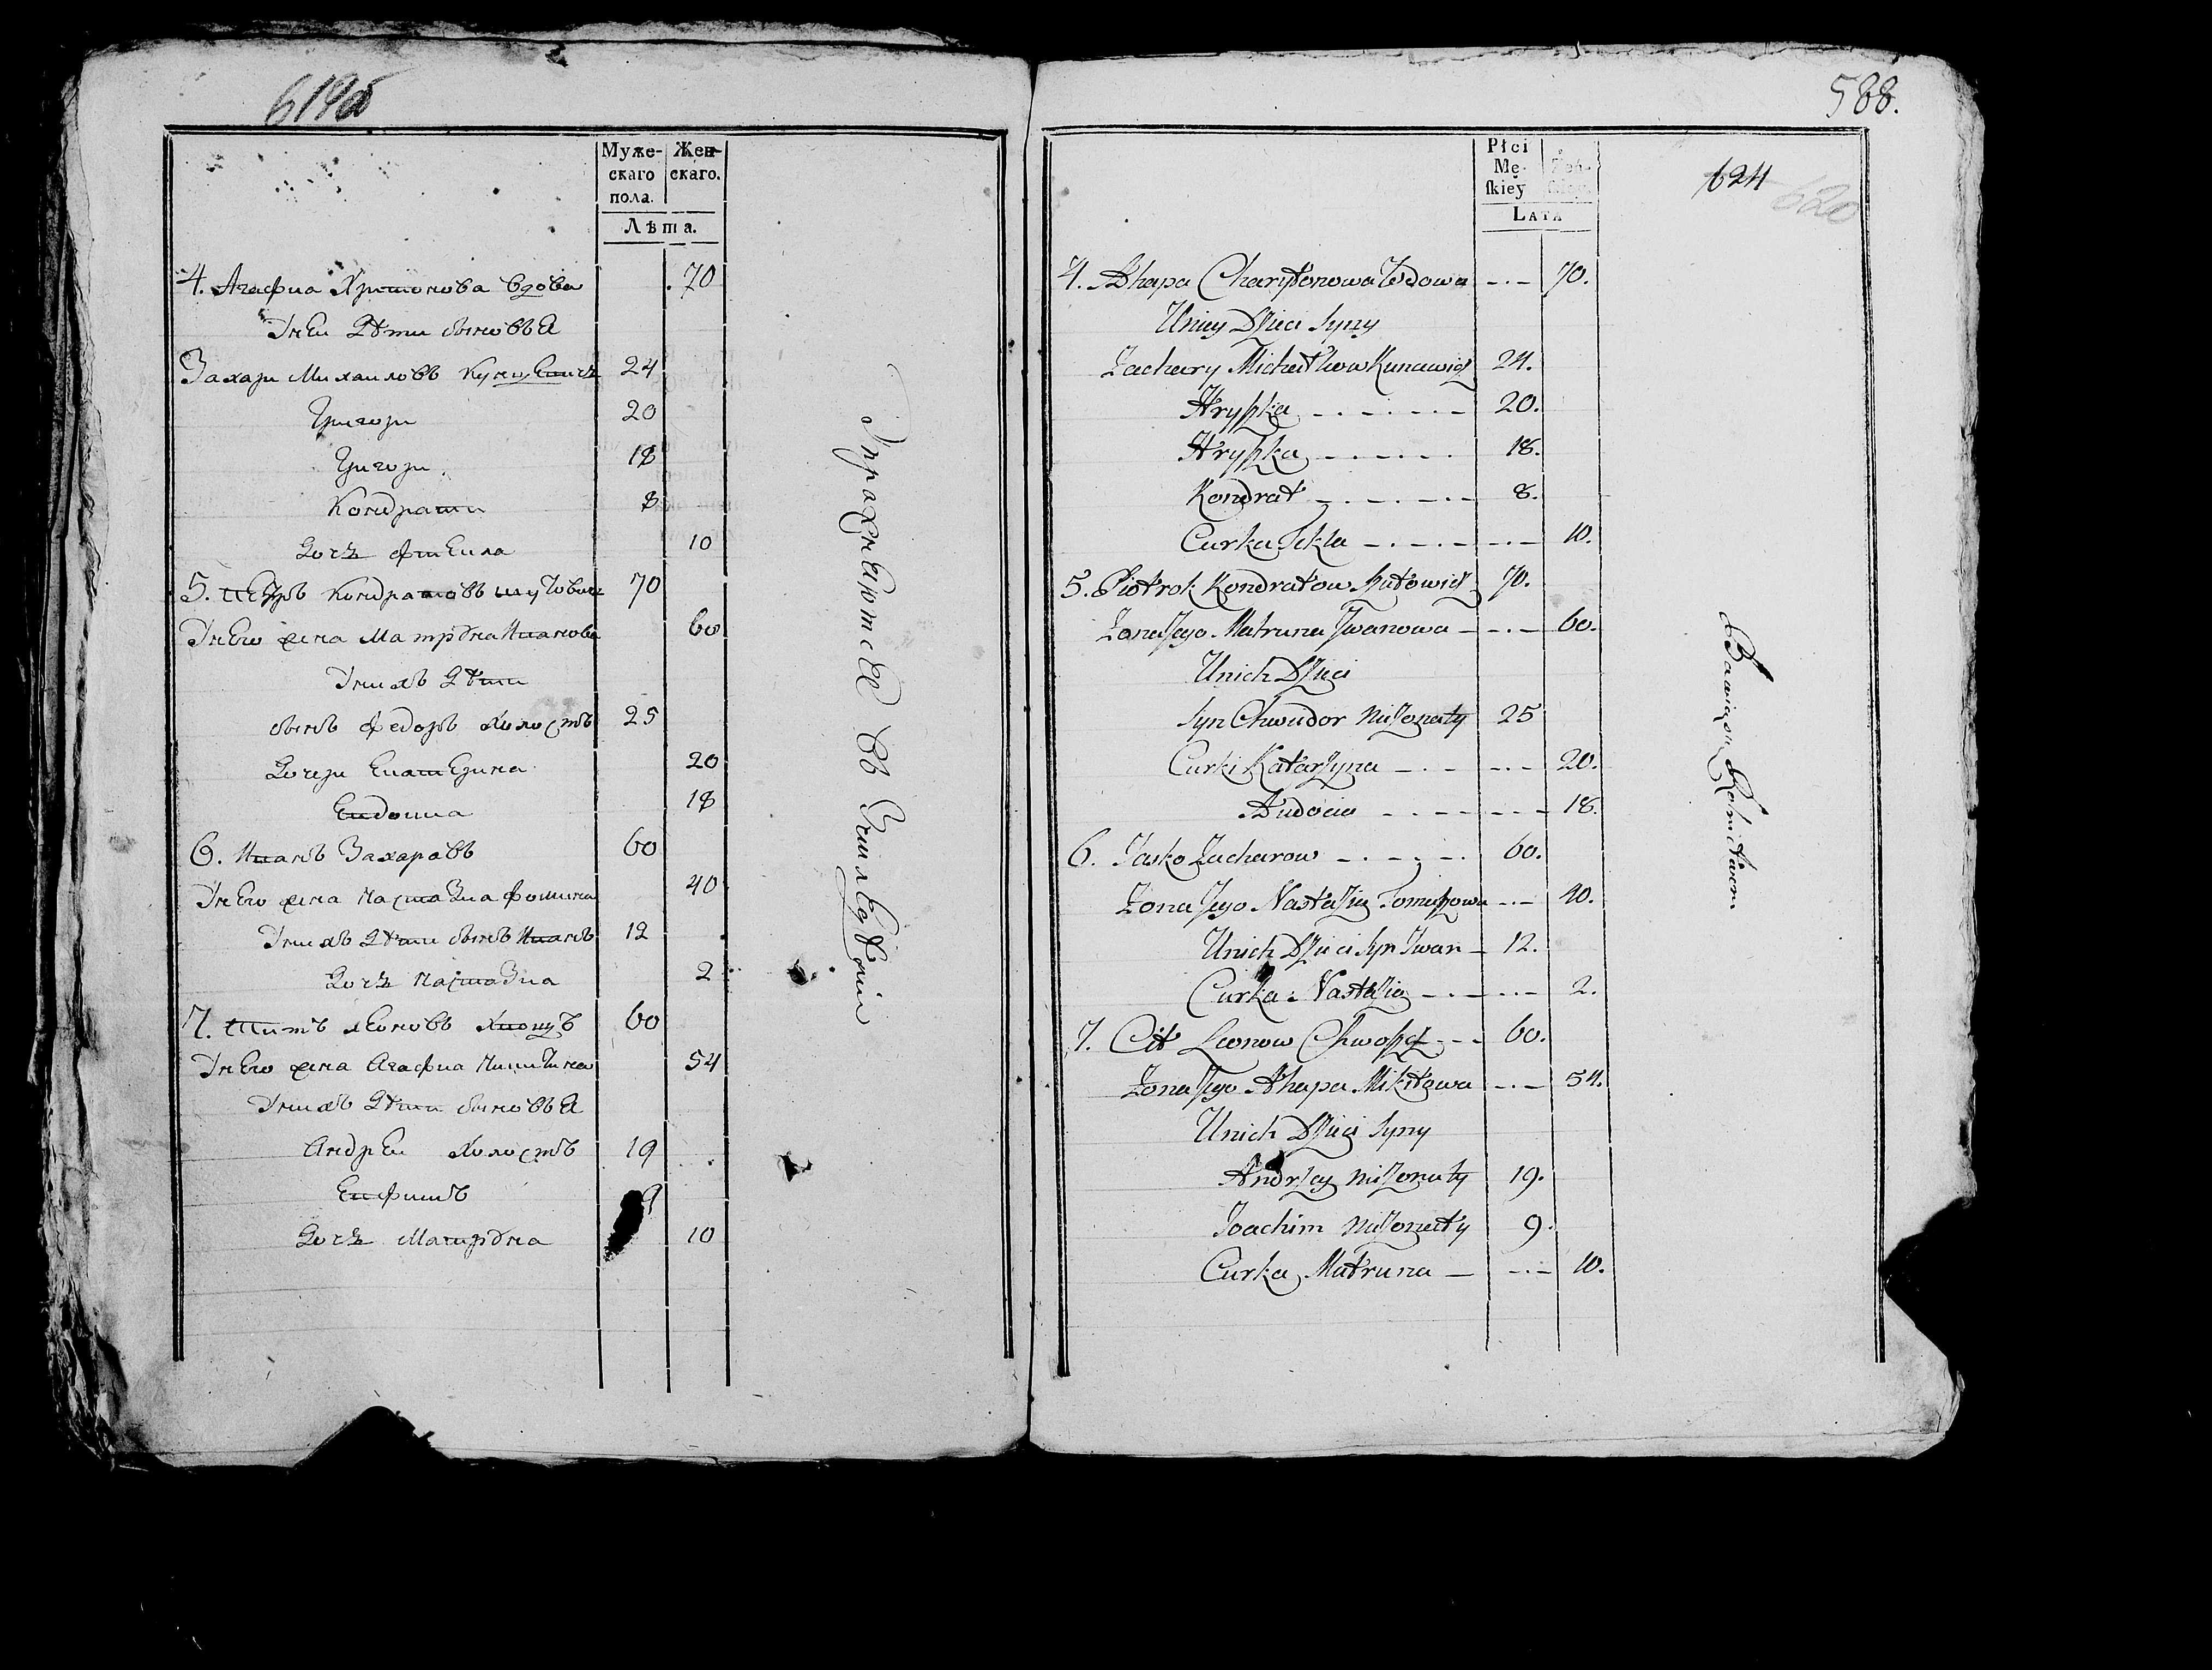 619об
Муже-
скаго
пола.
Жен-
скаго.
Лѣта.
4. Агафиа Хритонова вдова 70
Унеи дѣти сыновья
Захари Михаиловъ 24
Григори 20
Григори 18
Кондрати 8
Дочь Фтекла 10
5. Петръ Кондратовъ Шутович 70
Унего жена Матрўна Иванова 60
Унихъ дѣти
сынъ Федоръ холостъ 25
Дочери Екатерина 20
Евдокиа 18
6. Иванъ Захаровъ 60
Унего жена Настазиа Фомина 40
Унихъ дѣти сынъ Иванъ 12
Дочь Настазиа 2
7. Титъ Леоновъ 60
Унего жена Агафиа Никитина 54
Унихъ дѣти сыновья
Андреи холостъ 19
Ефимъ 9
Дочь Матрўна 10
Упражняютсе въ Земледѣлии
588.
624
620
Płci
Mę-
ſkiey
Żeń-
ſkiey
Lata
4. Ahapa Charytonowa Wdowa -.- 70.
Uniey Dzieci Syny
Zachary Michałow Kunawicz 24.
Hryszka 20.
Hryszka 18.
Kondrat 8.
Curka Tekla 10.
5. Piotrok Kondratow Szutowicz 70.
Zona Jego Matruna Iwanowa 60.
Unich Dzieci
Syn Chwiedor nieżonaty 25
Curki Katarzyna 20.
Audocia 18.
6. Jasko Zacharow 60.
Zona Jego Nastazia Tomaszowa 40.
Unich Dzieci Syn Iwan 12.
Curka Nastazia 2.
7. Cit Leonow Chwoszcz 60.
Zona Jego Ahapa Mikitowa 54.
Unich Dzieci Syny
Andrzey nieżonaty 19.
Joachim nieżonaty 9.
Curka Matruna 10.
Bawią się Rolnictwem